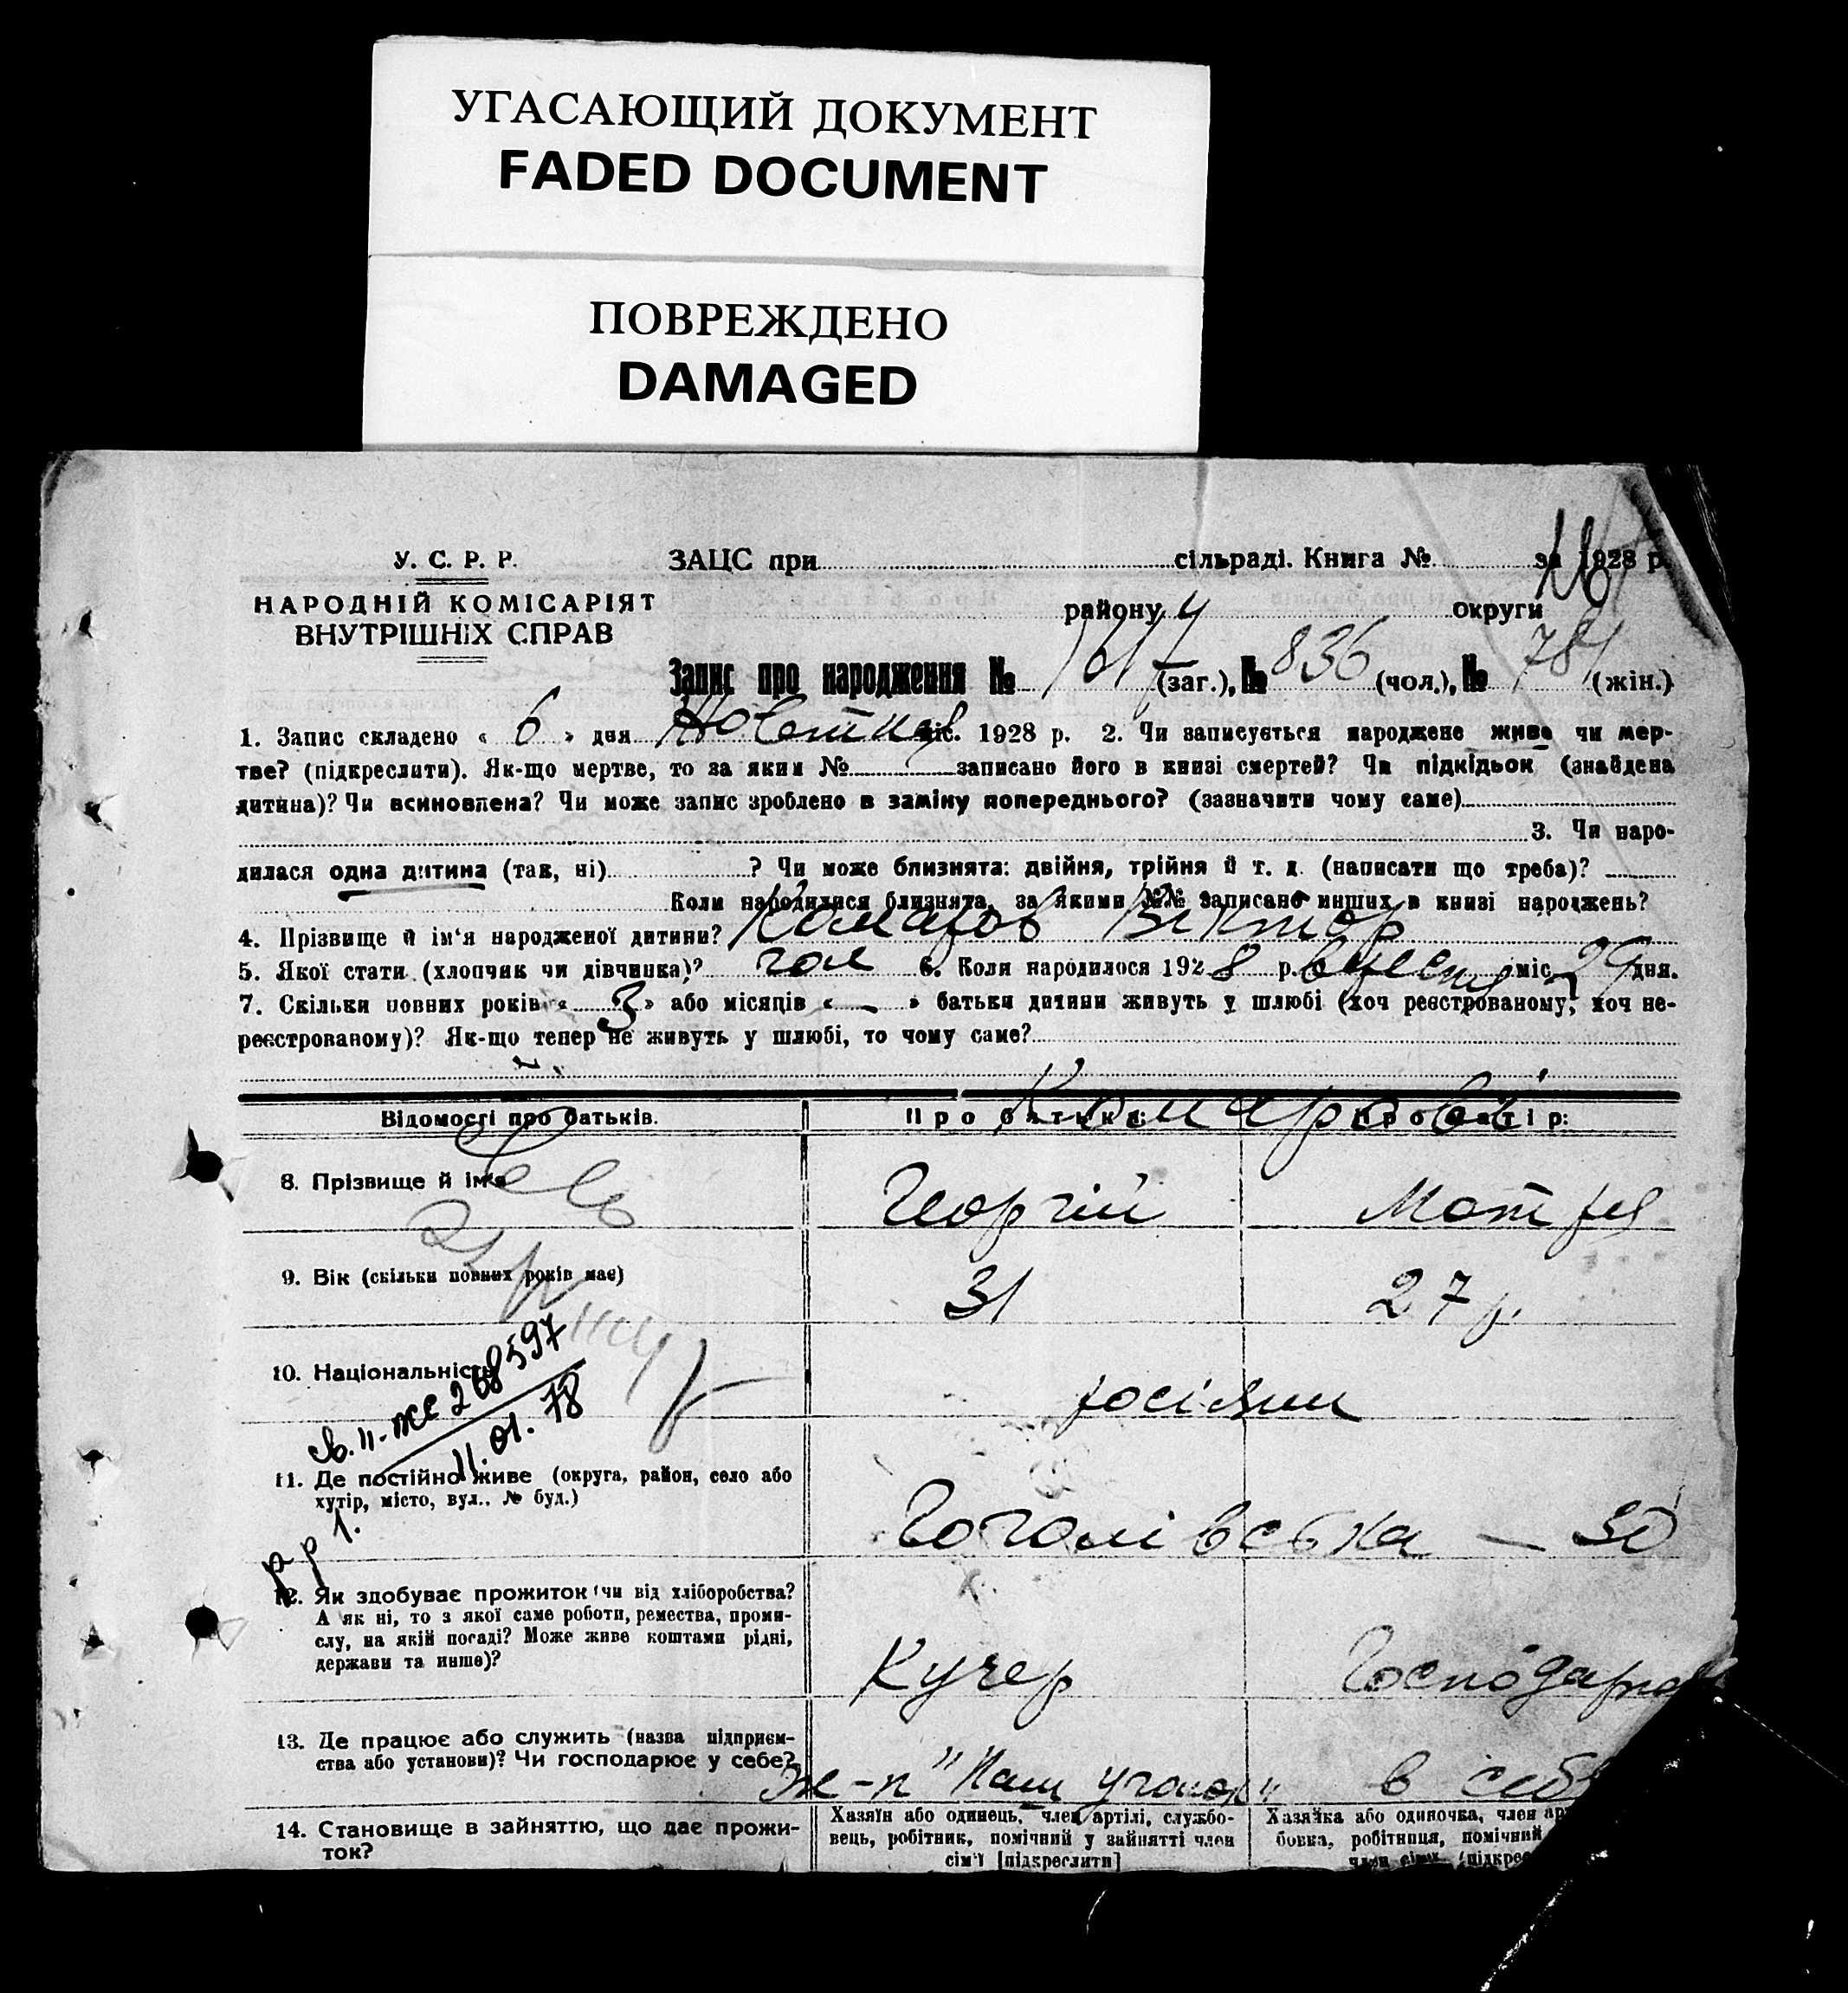 УГАСАЮЩИЙ ДОКУМЕНТ
FADED DOCUMENT
ПОВРЕЖДЕНО
DAMAGED
У. С. Р. Р.
НАРОДНІЙ КОМІСАРІЯТ
ВНУТРІШНІХ СПРАВ
ЗАЦС при сільраді. Книга № за 1928 р.
району 4 округи
Запис про народження № 1617 (заг.), № 836 (чол.), № 781 (жін.)
1. Запис складено « 6 » дня Жовтня міс. 1928 р. 2. Чи записується народжене живе чи мер-
тве? (підкреслити). Як-що мертве, то за яким № записано його в книзі смертей? Чи підкідьок (знайдена
дитина)? Чи всиновлена? Чи може запис зроблено в заміну попереднього? (зазначити чому саме)
3. Чи наро-
дилася одна дитина (так, ні) ? Чи може близнята: двійня, трійня й т. д. (написати що треба)?
Коли народилися близнята, за якими №№ записано инших в книзі народжень?
4. Прізвище й ім'я народженої дитини? Комаров Віктор
5. Якої стати (хлопчик чи дівчинка)? чол 6. Коли народилося 1928 р. вересня міс. 29 дня.
7. Скільки повних років « 3 » або місяців « — » батьки дитини живуть у шлюбі (хоч реєстрованому, хоч не-
реєстрованому)? Як-що тепер не живуть у шлюбі, то чому саме?
Відомості про батьків. Про батька: Про матір:
Комарови
8. Прізвище й ім'я Георгій Мотря
9. Вік (скільки повних років має) 31 27 р.
10. Національність росіяни
св. II-ЖС 268597
11.01.78
11. Де постійно живе (округа, район, село або
хутір, місто, вул., № буд.) Гоголівська — 30
12. Як здобуває прожиток (чи від хліборобства?
А як ні, то з якої саме роботи, ремества, проми-
слу, на якій посаді? Може живе коштами рідні,
держави та инше)? Кучер Господарка
13. Де працює або служить (назва підприєм-
ства або установи)? Чи господарює у себе? ж-п "Наш уголок" в себе
14. Становище в зайняттю, що дає прожи-
ток?
Хазяїн або одинець, член артілі, службо-
вець, робітник, помічний у зайнятті член
сім'ї [підкреслити]
Хазяйка або одиночка, член ар
бовка, робітниця, помічний
член сім'ї (підкрес